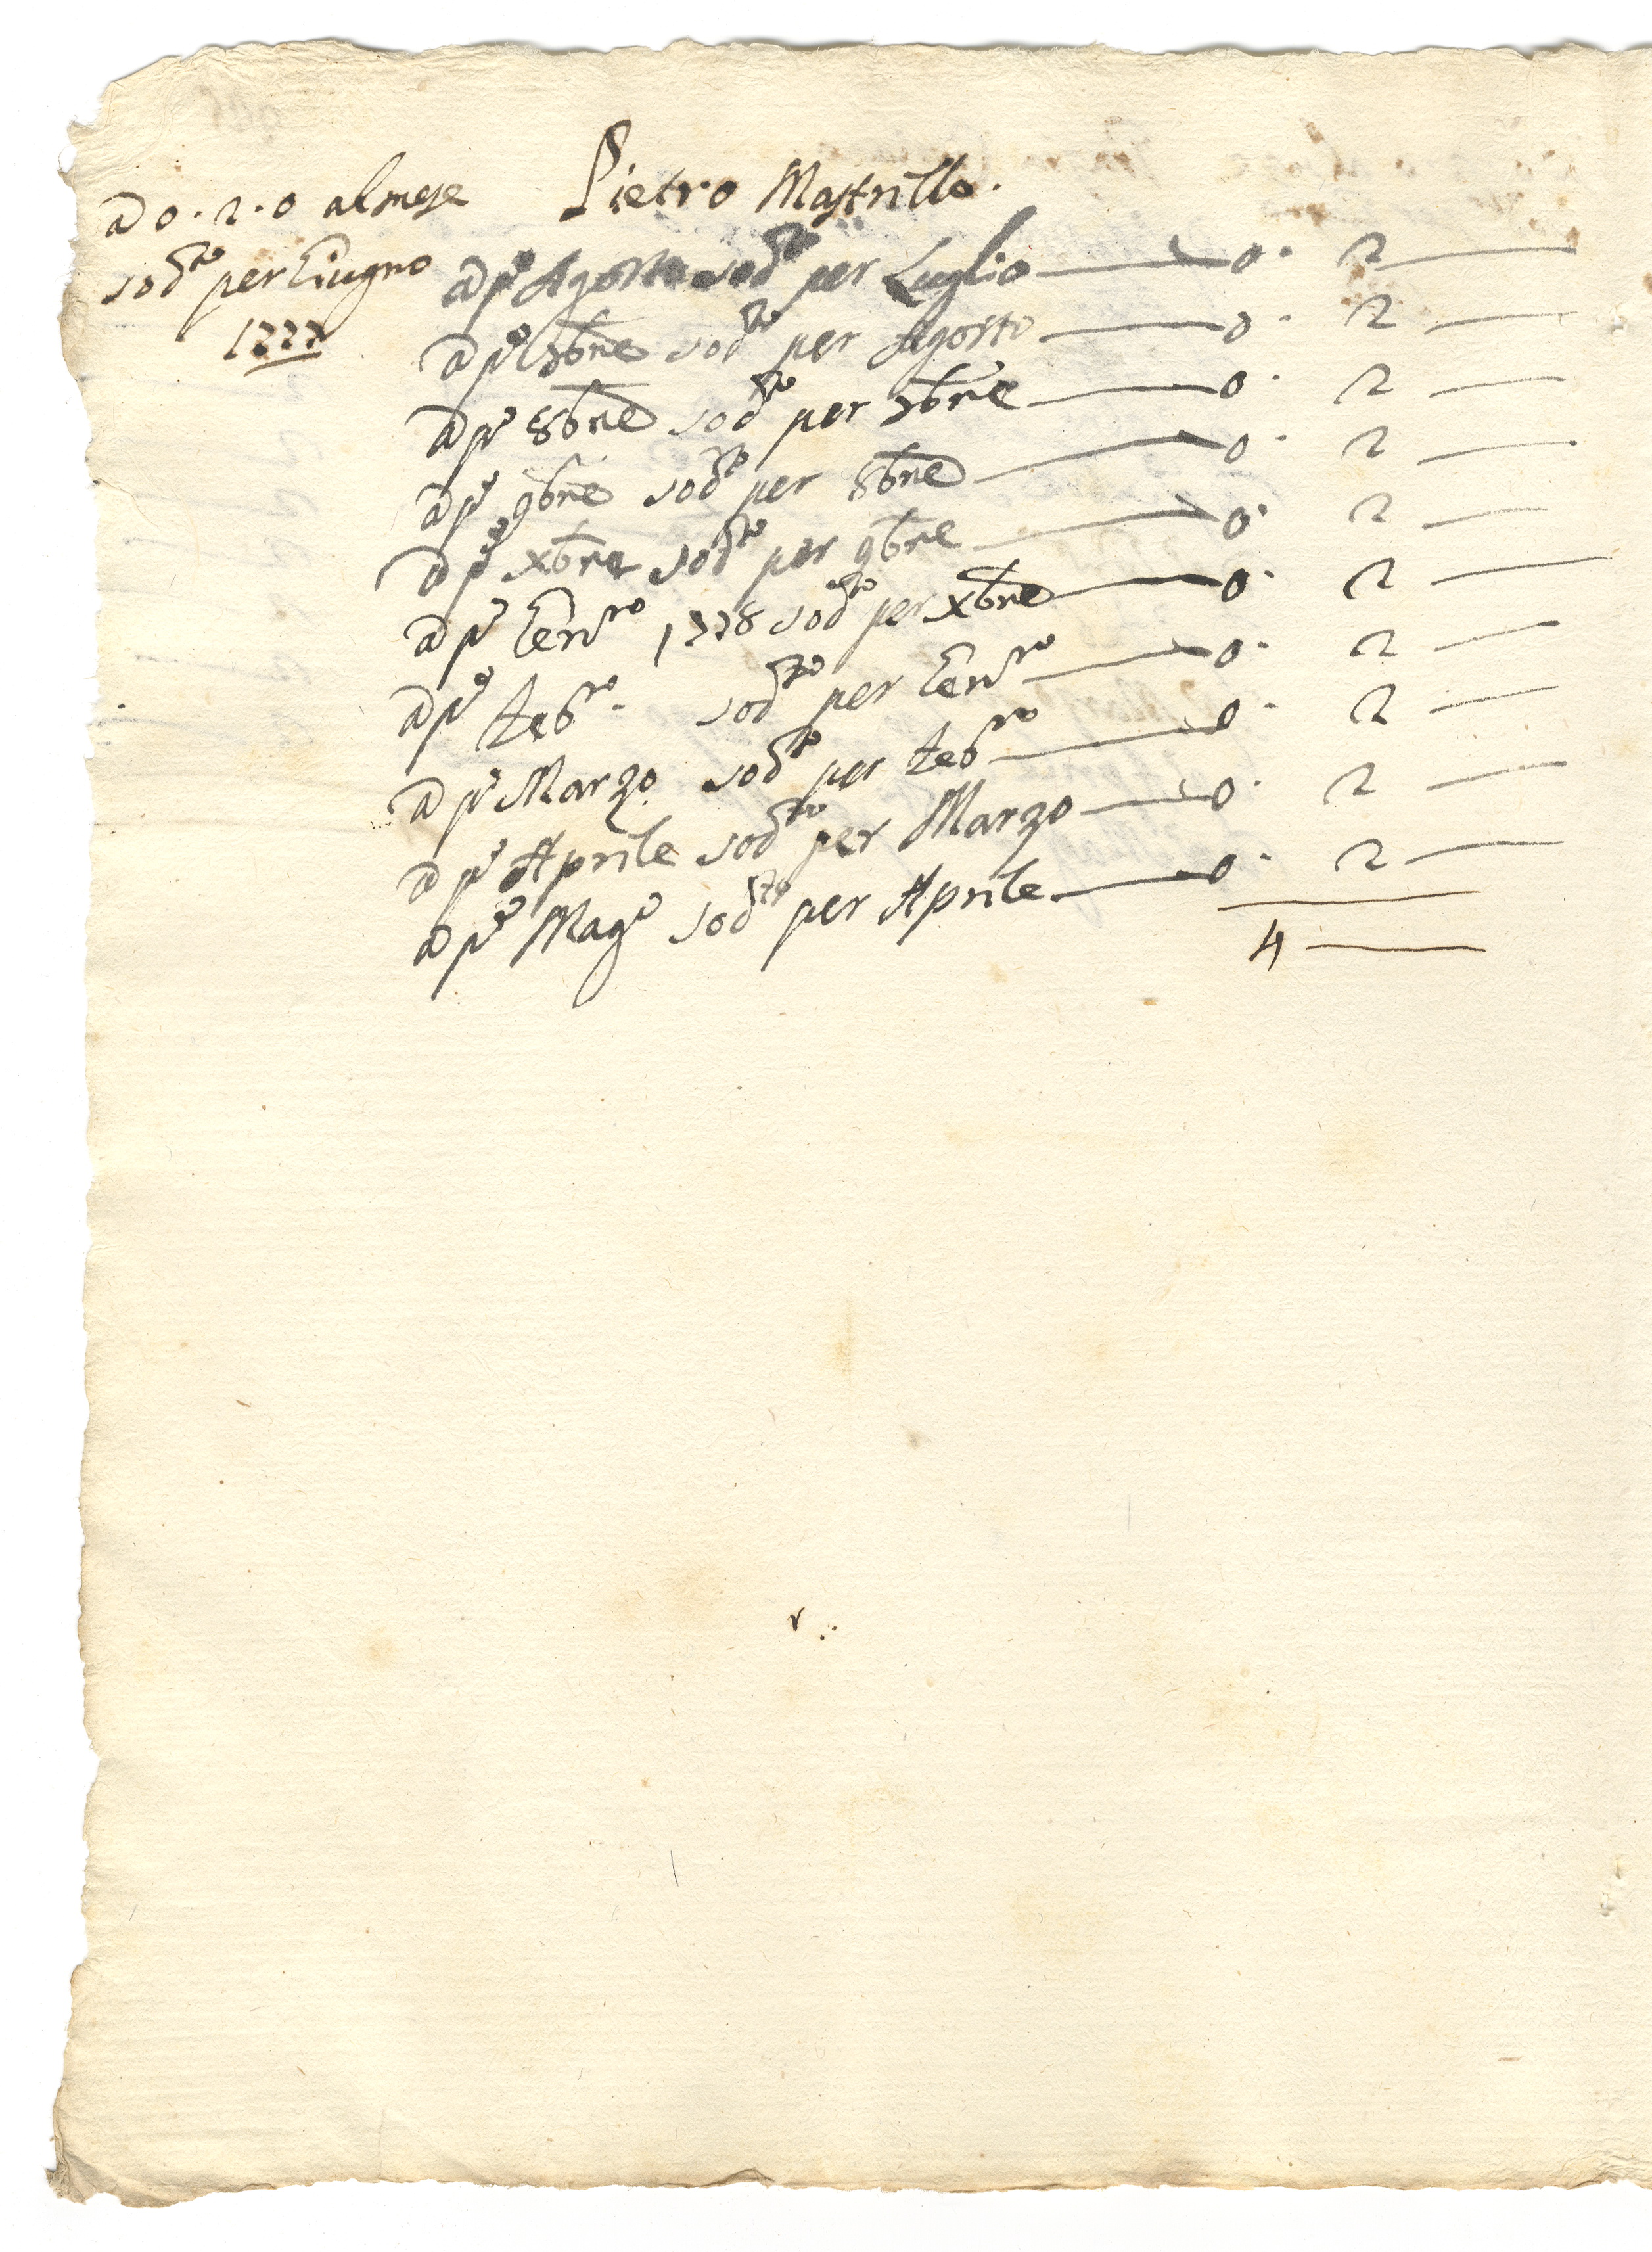 a 0.2.0 al mese
sod.to per Giugno
1777
Pietro Mastrillo.
a p.o Agosto sod.to per Luglio — 0. 2 —
a p.o 7bre sod.to per Agosto — 0. 2 —
a p.o 8bre sod.to per 7bre — 0. 2 —
a p.o 9bre sod.to per 8bre — 0. 2 —
a p.o xbre sod.to per 9bre — 0. 2 —
a p.o Genn.ro 1778 sod.to per xbre — 0. 2 —
a p.o feb.ro sod.to per Genn.ro — 0. 2 —
a p.o Marzo sod.to per feb.ro — 0. 2 —
a p.o Aprile sod.to per Marzo — 0. 2 —
a p.o Mag.o sod.to per Aprile — 0. 2 —
4 —